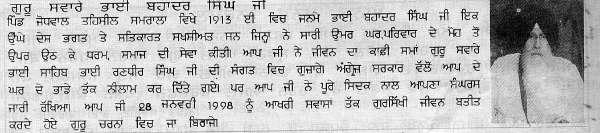 ਗੁਰੂ ਸਵਾਰੇ ਭਾਈ ਬਹਾਦਰ ਸਿੰਘ ਜੀ
ਪਿੰਡ ਜੋਧਵਾਲ ਤਹਿਸੀਲ ਸਮਰਾਲਾ ਵਿਖੇ 1913 ਈ ਵਿਚ ਜਨਮੇ ਭਾਈ ਬਹਾਦਰ ਸਿੰਘ ਜੀ ਇਕ
ਉੱਘੇ ਦੇਸ ਭਗਤ ਤੇ ਸਤਿਕਾਰਤ ਸਖਸ਼ੀਅਤ ਸਨ ਜਿਨ੍ਹਾ ਨੇ ਸਾਰੀ ਉਮਰ ਘਰ,ਪਰਿਵਾਰ ਦੇ ਮੋਹ ਤੋ
ਉਪਰ ਉਠ ਕੇ ਧਰਮ, ਸਮਾਜ ਦੀ ਸੇਵਾ ਕੀਤੀ। ਆਪ ਜੀ ਨੇ ਜੀਵਨ ਦਾ ਕਾਫ਼ੀ ਸਮਾਂ ਗੁਰੂ ਸਵਾਰੇ
ਭਾਈ ਸਾਹਿਬ ਭਾਈ ਰਣਧੀਰ ਸਿੰਘ ਜੀ ਦੀ ਸੰਗਤ ਵਿਚ ਗੁਜਾਰੇ। ਅੰਗ੍ਰੇਜ਼ ਸਰਕਾਰ ਵੱਲੋਂ ਆਪ ਦੇ
ਘਰ ਦੇ ਭਾਂਡੇ ਤੱਕ ਨੀਲਾਮ ਕਰ ਦਿੱਤੇ ਗਏ। ਪਰ ਆਪ ਜੀ ਨੇ ਪੂਰੇ ਸਿਦਕ ਨਾਲ ਆਪਣਾ ਸੰਘਰਸ
ਜਾਰੀ ਰੱਖਿਆ। ਆਪ ਜੀ 28 ਜਨੵਵਰੀ 1998 ਨੂੰ ਆਖਰੀ ਸਵਾਸਾਂ ਤੱਕ ਗੁਰਸਿੱਖੀ ਜੀਵਨ ਬਤੀਤ
ਕਰਦੇ ਹੋਏ ਗੁਰੂ ਚਰਨਾ ਵਿਚ ਜਾ ਬਿਰਾਜੇ।